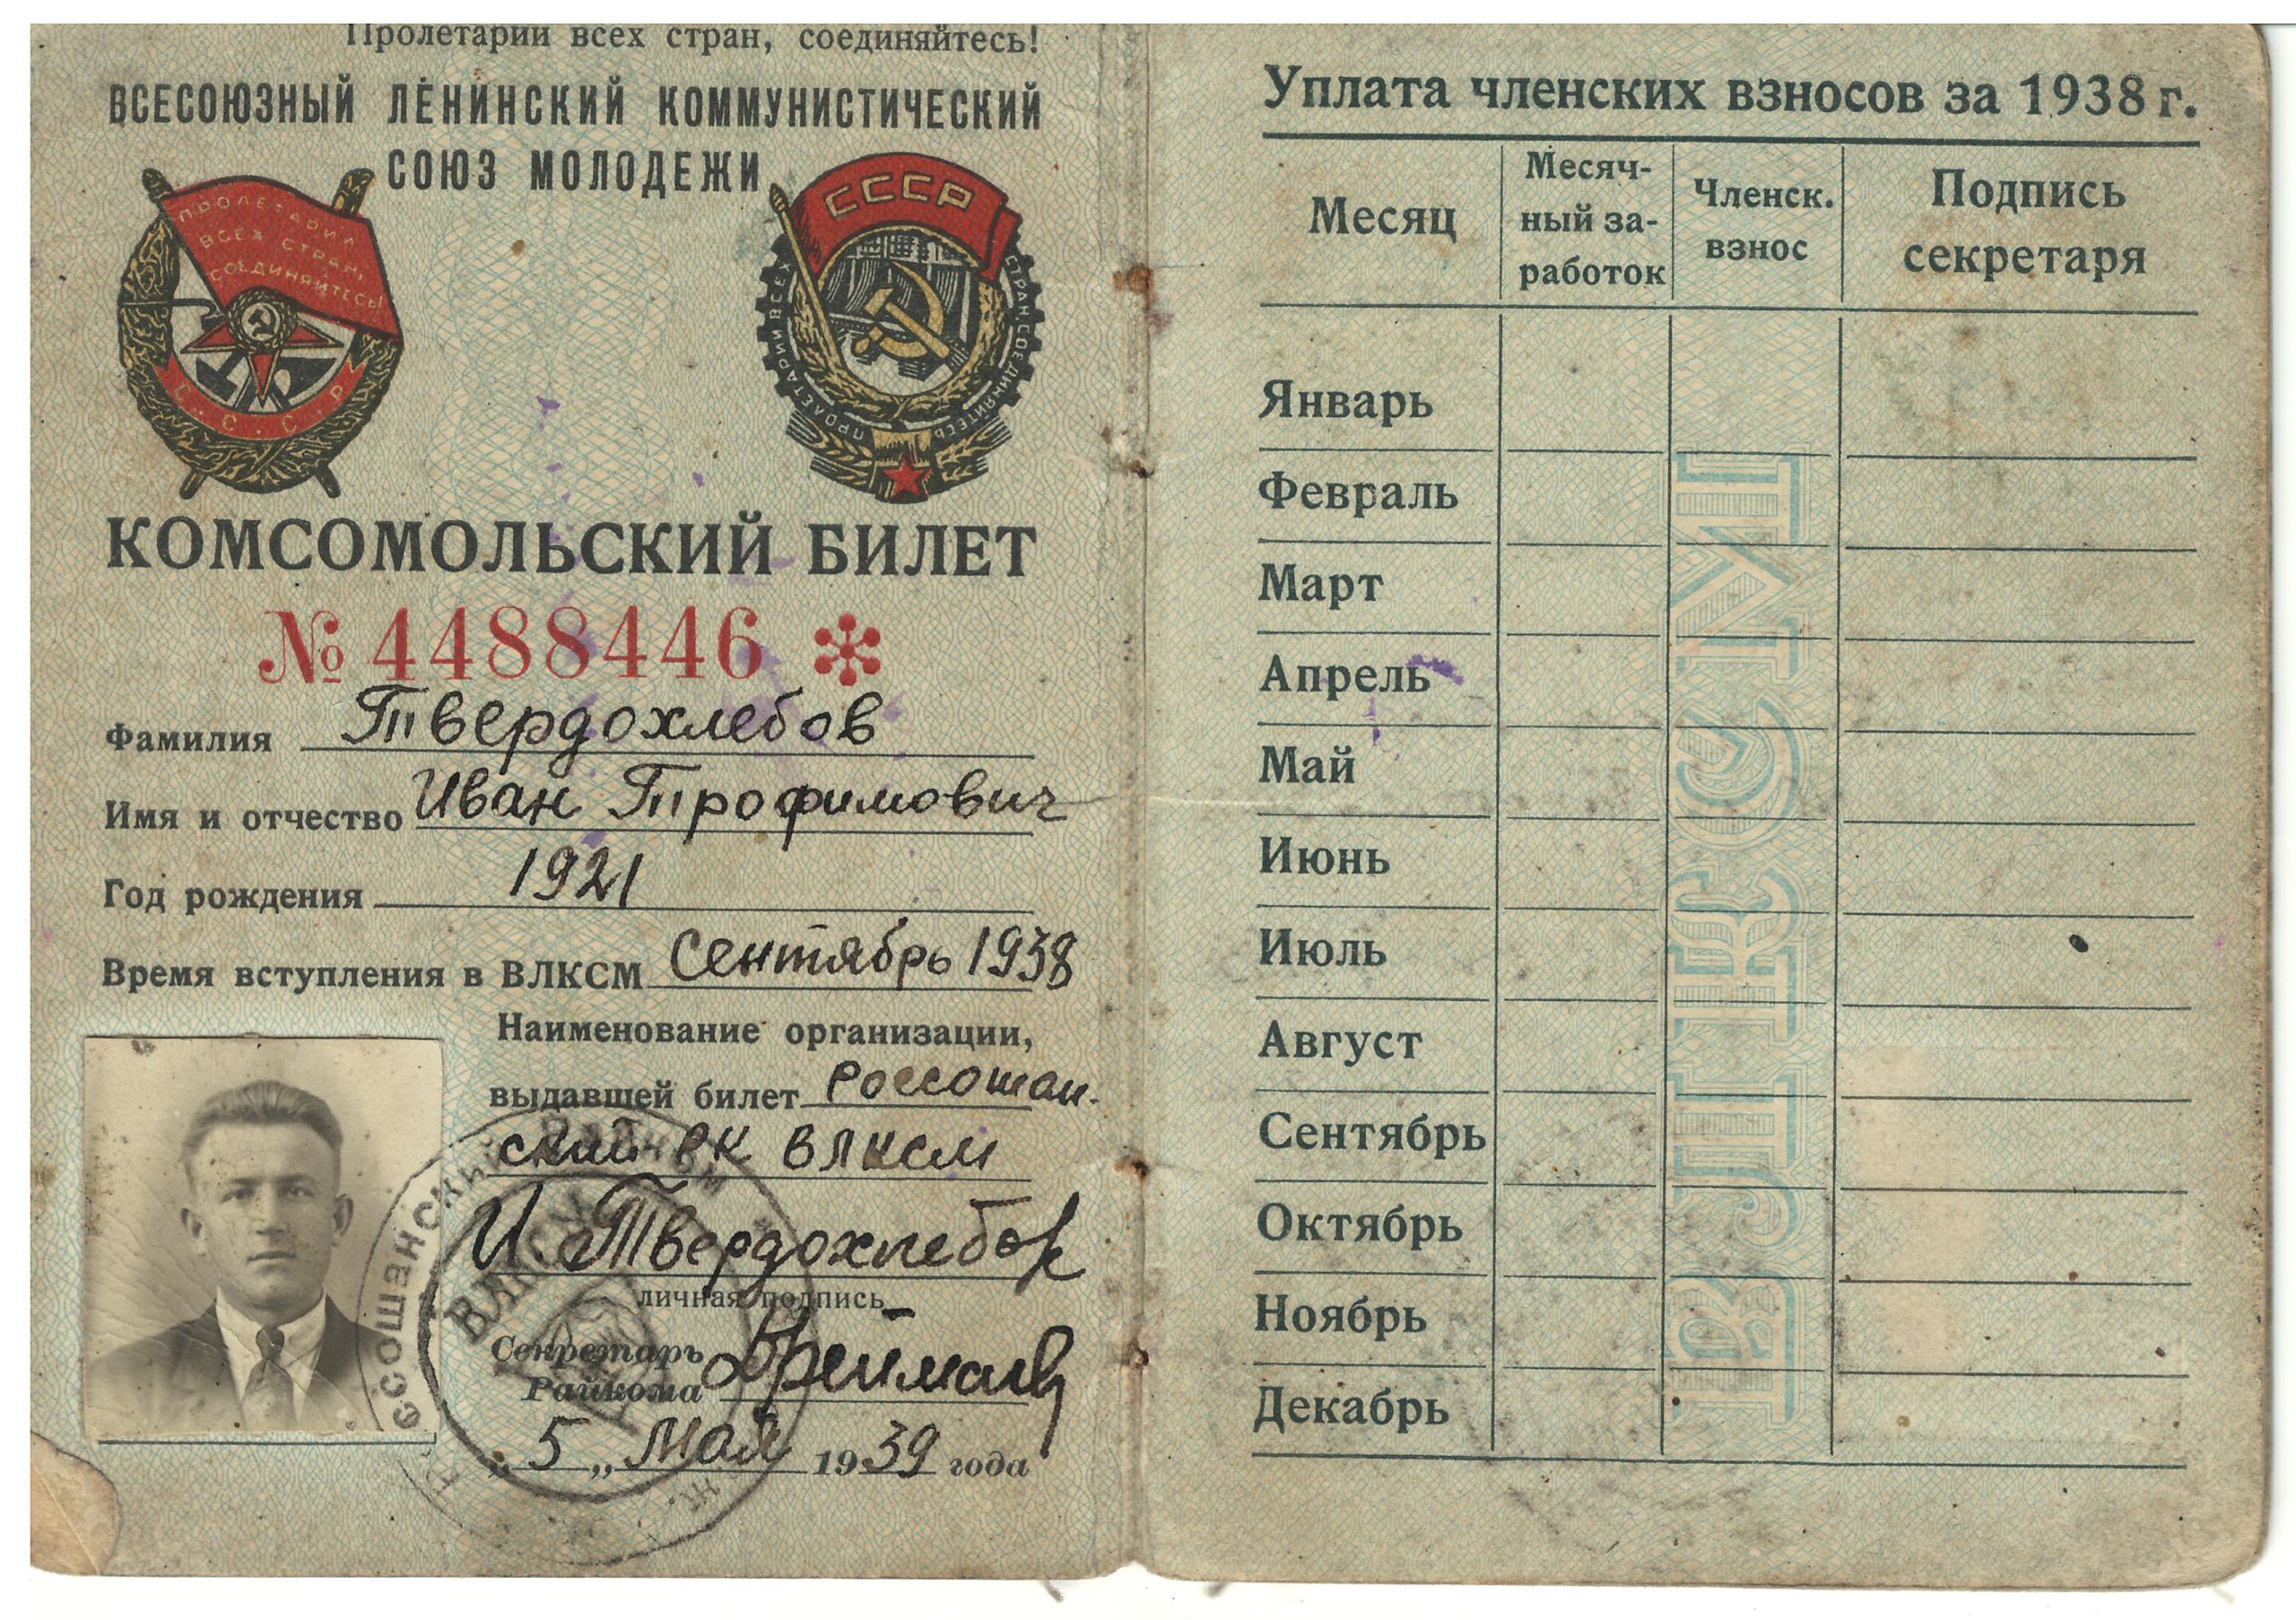 Пролетарии всех стран, соединяйтесь!
ВСЕСОЮЗНЫЙ ЛЕНИНСКИЙ КОММУНИСТИЧЕСКИЙ
СОЮЗ МОЛОДЕЖИ
ПРОЛЕТАРИИ
ВСЕХ СТРАН,
СОЕДИНЯЙТЕСЬ!
С. С. С. Р.
СССР
ПРОЛЕТАРИИ ВСЕХ СТРАН СОЕДИНЯЙТЕСЬ
КОМСОМОЛЬСКИЙ БИЛЕТ
№ 4488446
Фамилия Твердохлебов
Имя и отчество Иван Трофимович
Год рождения 1921
Время вступления в ВЛКСМ Сентябрь 1938
Наименование организации,
выдавшей билет Россошан-
ский РК ВЛКСМ
И. Твердохлебов
личная подпись
Секретарь
Райкома
„5„ Мая 1939 года
ВЛКСМ
Уплата членских взносов за 1938 г.
Месяц
Месяч-
ный за-
работок
Членск.
взнос
Подпись
секретаря
Январь
Февраль
Март
Апрель
Май
Июнь
Июль
Август
Сентябрь
Октябрь
Ноябрь
Декабрь
ВЛКСМ